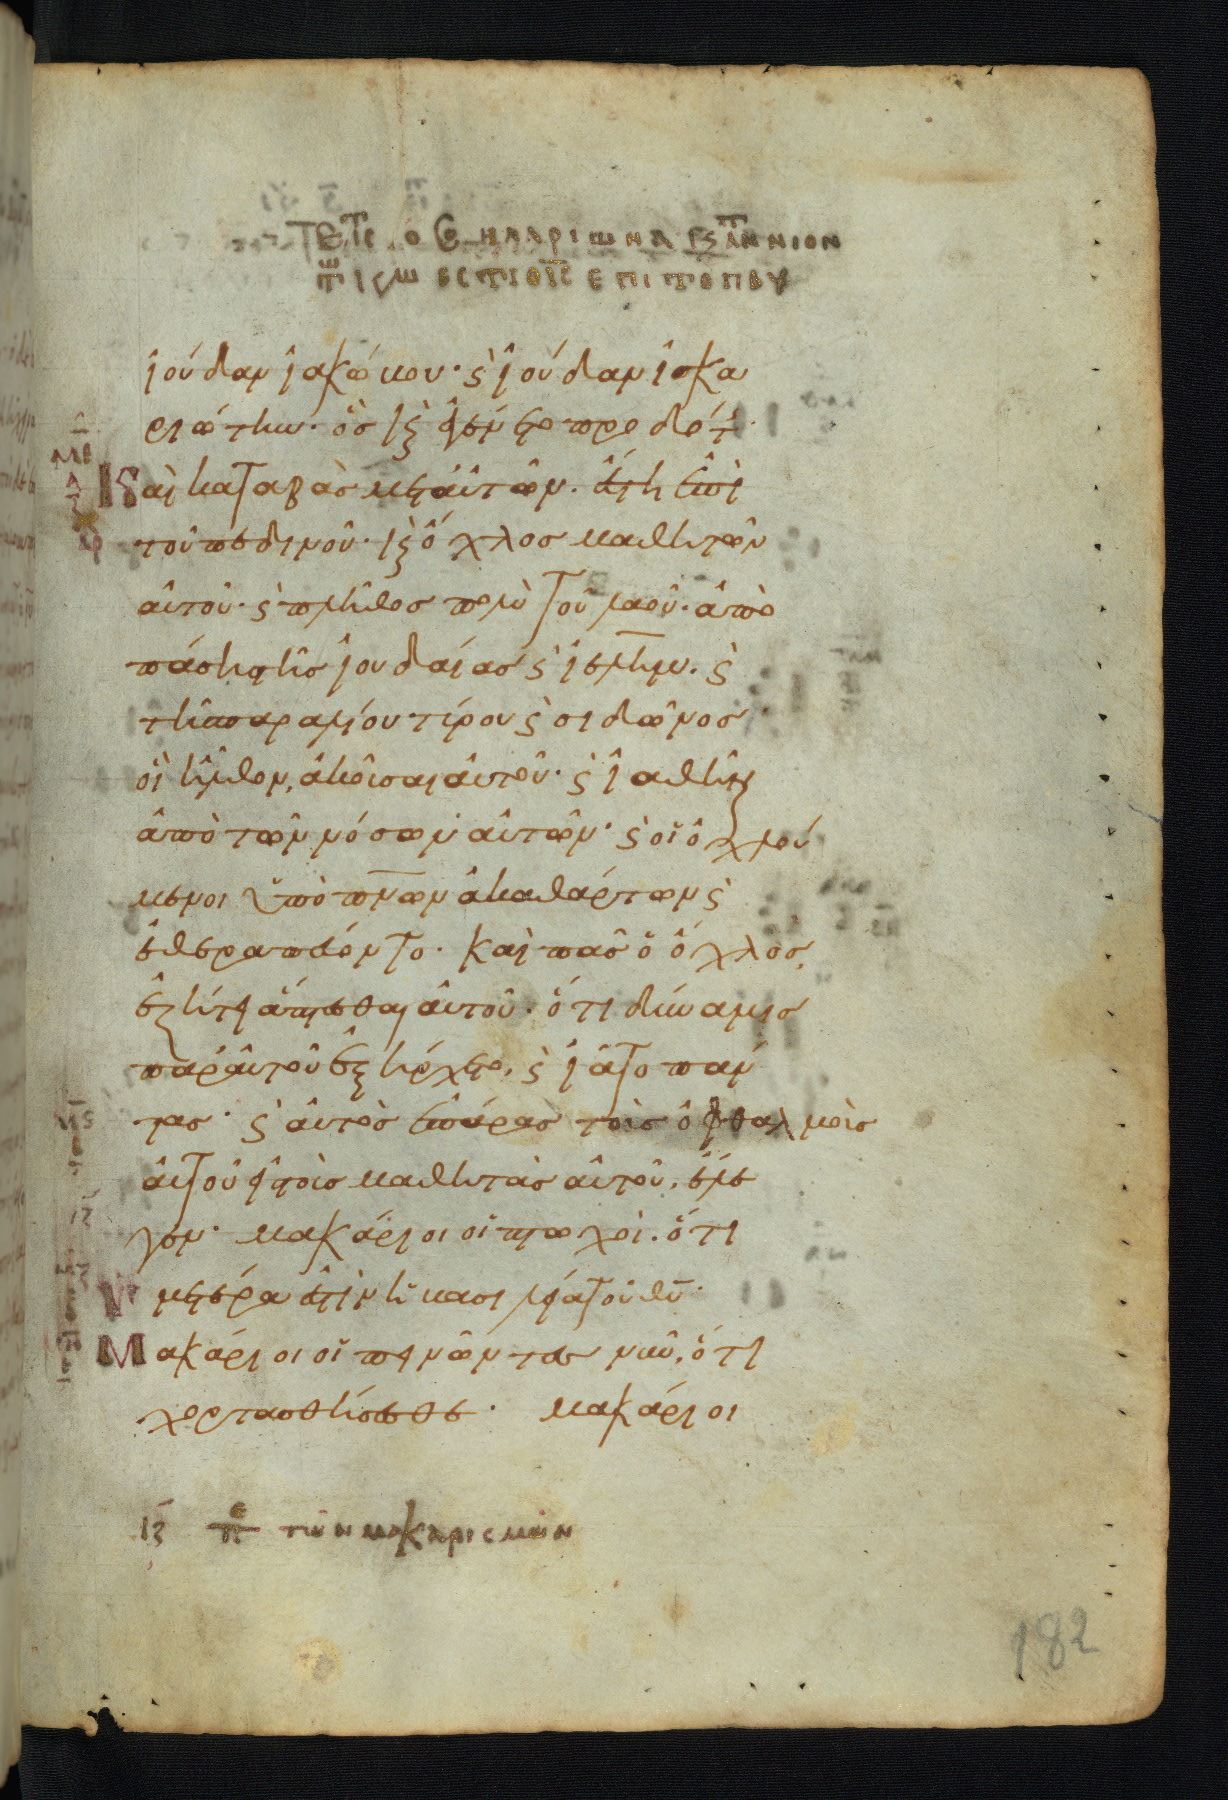 ἰούδαν ἰακώβου· ϛ ἰούδαν ἰσκα
ριώτην· ὃσ ϗ ἐγένετο προδότ
Καὶ καταβὰσ μετ' αὐτῶν. ἔστη ἐπὶ
τοῦ πεδινοῦ· ϗ ὄχλοσ μαθητῶν
αὐτοῦ· ϛ πλῆθοσ πολὺ τοῦ λαοῦ· ἀπὸ
πάσησ τῆσ ἰουδαίασ ϛ ἰ̅λ̅η̅μ. ϛ
τῆσ παραλίου τύρου ϛ σιδῶνοσ
οἳ ἦλθον, ἀκοῦσαι αὐτοῦ· ϛ ἰαθῆναι
ἀπὸ τῶν νόσων αὐτῶν· ϛ οἱ ὀχλού
μενοι ὑπὸ πν̅ων ἀκαθάρτων ϛ
ἐθεραπεύοντο· καὶ πᾶσ ὁ ὄχλοσ,
ἐζήτει ἅπτεσθαι αὐτοῦ· ὅτι δύναμισ
παρ' αὐτοῦ ἐξήρχετο, ϛ ἰᾶτο πάν
τασ· ϛ αὐτὸσ ἐπάρασ τοὺσ ὀφθαλμοὺσ
αὐτοῦ εἰσ τοὺσ μαθητὰσ αὐτοῦ, ἔλε
γεν· μακάριοι οἱ πτωχοὶ· ὅτι
ὑμετέρα ἐστὶν ἡ βασιλεία τοῦ θ̅υ̅·
Μακάριοι οἱ πεινῶντεσ νῦν, ὅτι
χορτασθήσεσθε· μακάριοι
ιζ πε τῶν μακαρισμῶν
182